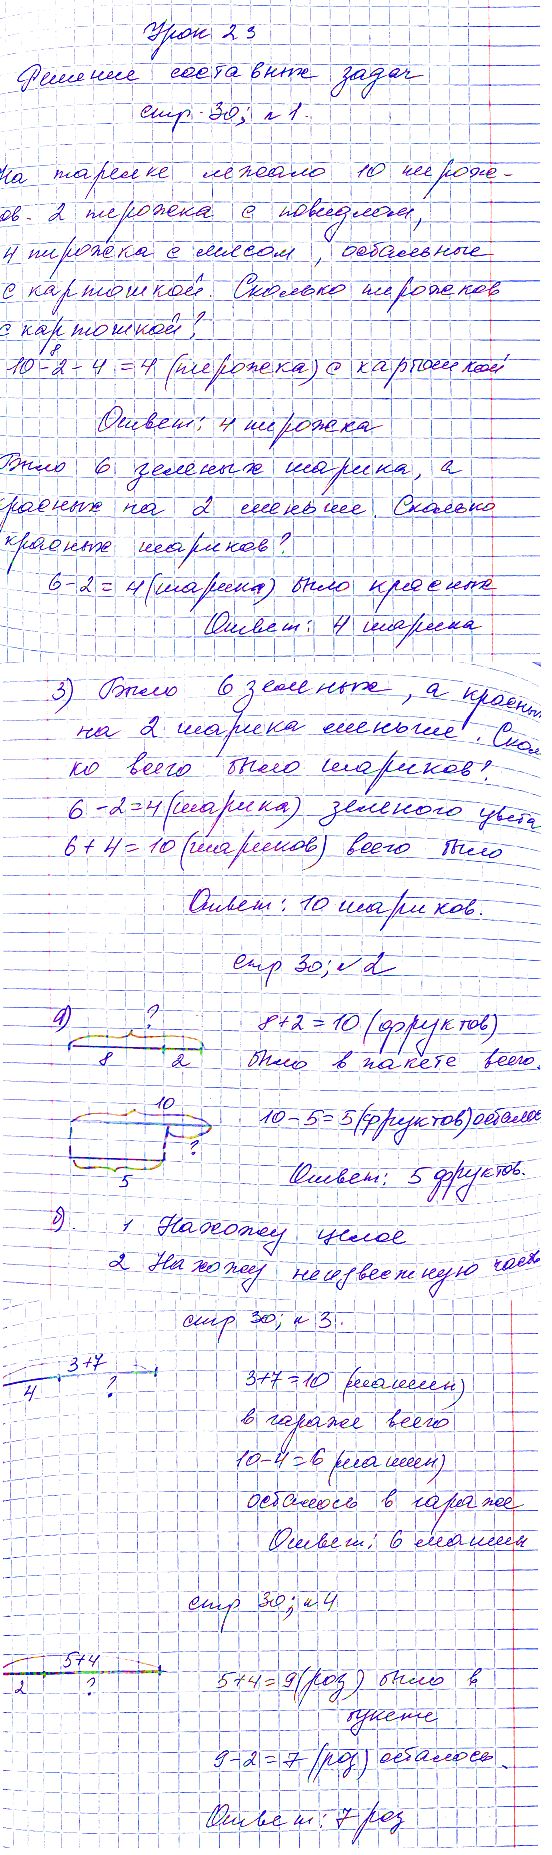 Урок 23
Решение составных задач
стр. 30; № 1.
На тарелке лежало 10 пирож-
ов. 2 пирожка с повидлом,
4 пирожка с мясом, остальные
с картошкой. Сколько пирожков
с картошкой?
8
10-2-4=4 (пирожка) с картошкой
Ответ: 4 пирожка
Было 6 зеленых шарика, а
красных на 2 меньше. Сколько
красных шариков?
6-2=4 (шарика) было красных
Ответ: 4 шарика
3) Было 6 зеленых, а красных
на 2 шарика меньше. Скол
ко всего было шариков?
6-2=4 (шарика) зеленого цвета
6+4=10 (шариков) всего было
Ответ: 10 шариков.
стр 30; № 2
а) ? 8+2=10 (фруктов)
8 2 было в пакете всего.
10 10-5=5 (фруктов) осталось
?
5 Ответ: 5 фруктов.
б). 1 Нахожу целое
2 Нахожу неизвестную часть
стр 30; № 3.
3+7 3+7=10 (машин)
4 ? в гараже всего
10-4=6 (машин)
осталось в гараже
Ответ: 6 машин
стр 30; № 4
5+4 5+4=9 (роз) было в
2 ? букете
9-2=7 (роз) осталось.
Ответ: 7 роз